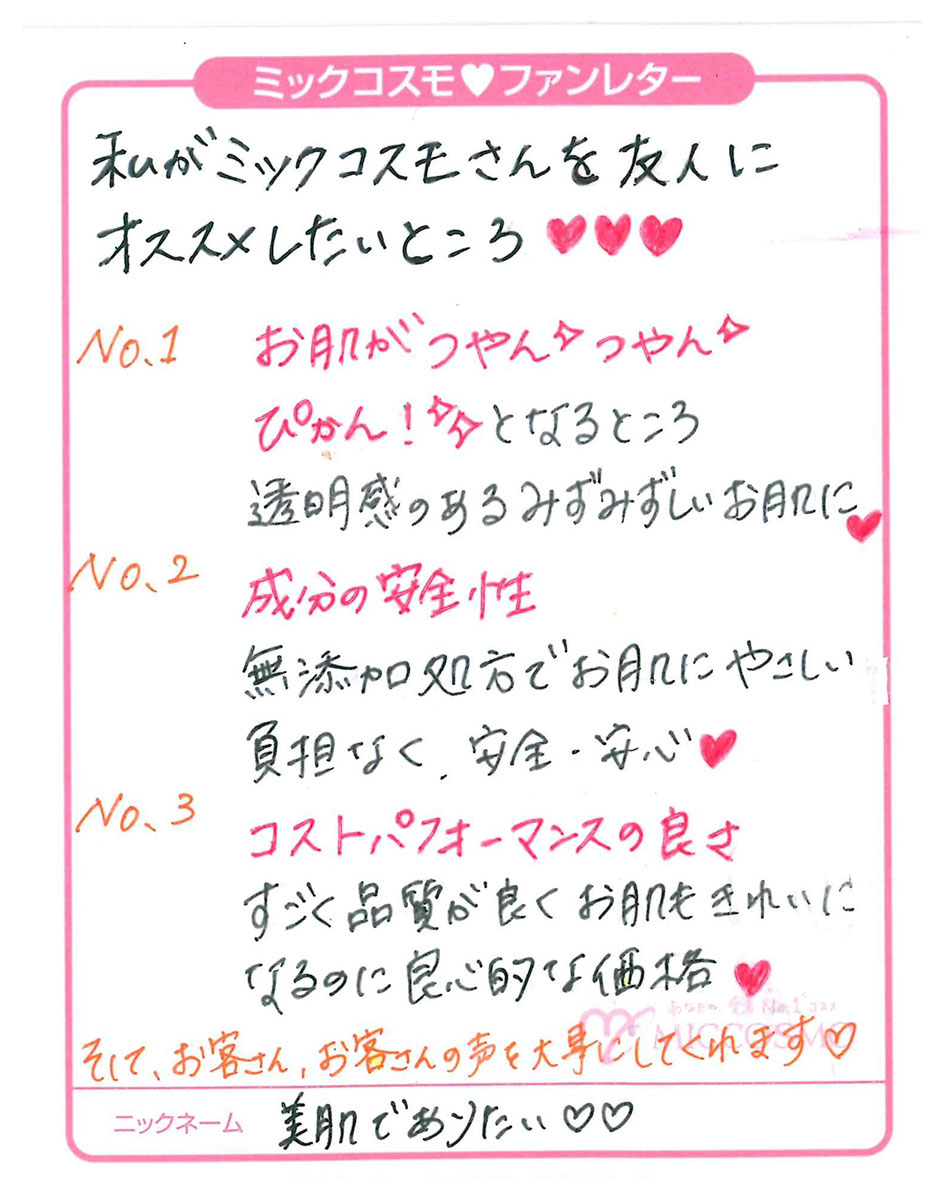 ミックコスモ♥ファンレター
私がミックコスモさんを友人に
オススメしたいところ♥♥♥
No.1 お肌がつやん✧つやん✧
ぴかん!✧✧となるところ
透明感のあるみずみずしいお肌に♥
No.2 成分の安全性
無添加処方でお肌にやさしい
負担なく、安全・安心♥
No.3 コストパフォーマンスの良さ
すごく品質が良くお肌もきれいに
なるのに良心的な価格♥
あなたの、愛着No.1コスメ
MICCOSMO
そして、お客さん、お客さんの声を大事にしてくれます♡
ニックネーム 美肌でありたい♡♡